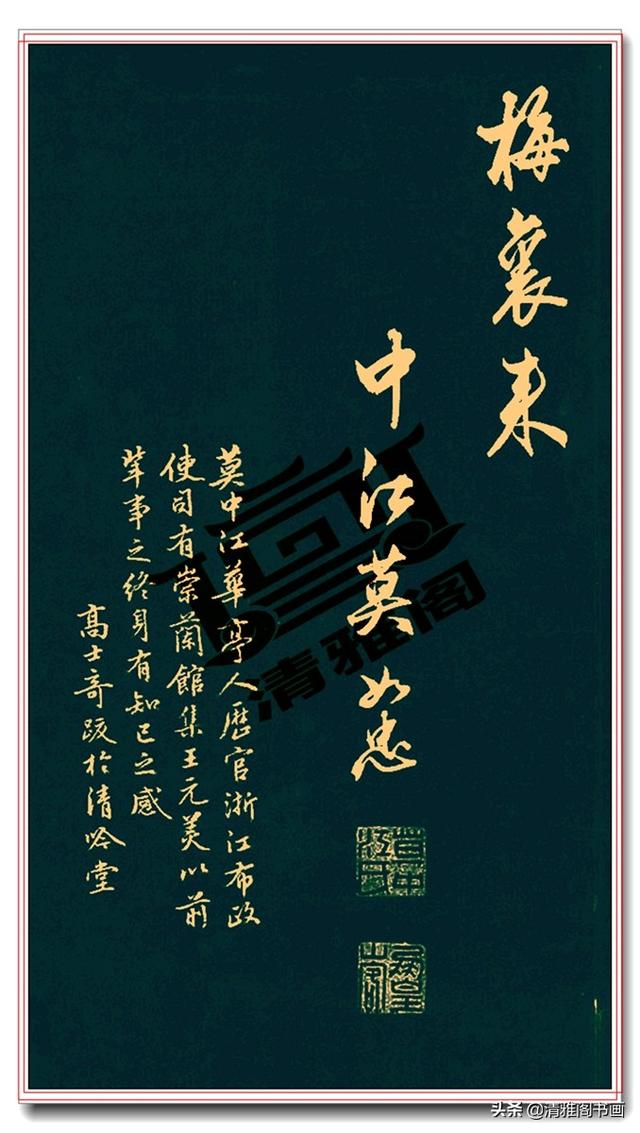 梅裏来
中江莫如忠
莫中江華亭人歷官浙江布政
使司有崇蘭館集王元美以前
輩事之終身有知己之感
高士奇跋於清吟堂
清雅阁
头条@清雅阁书画